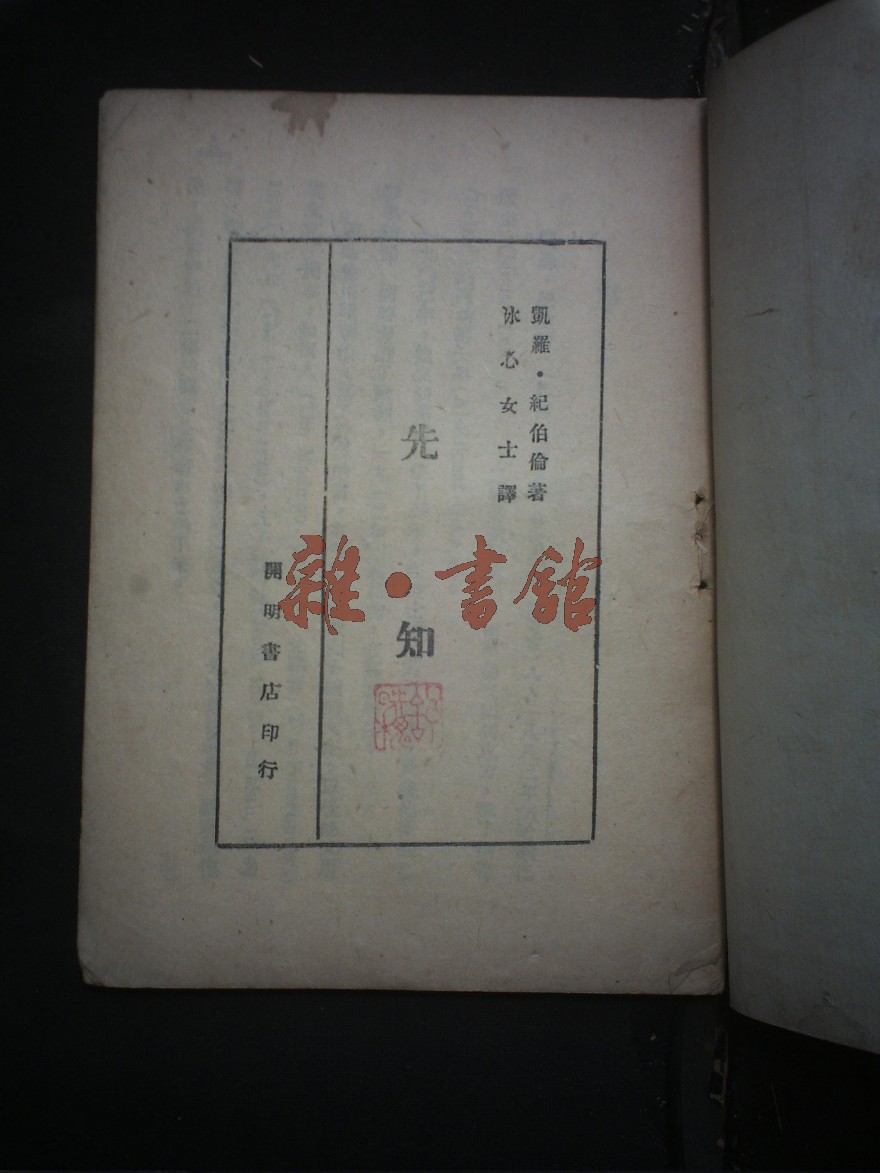 凱羅・紀伯倫著
冰心女士譯
先知
開明書店印行
雜・書館